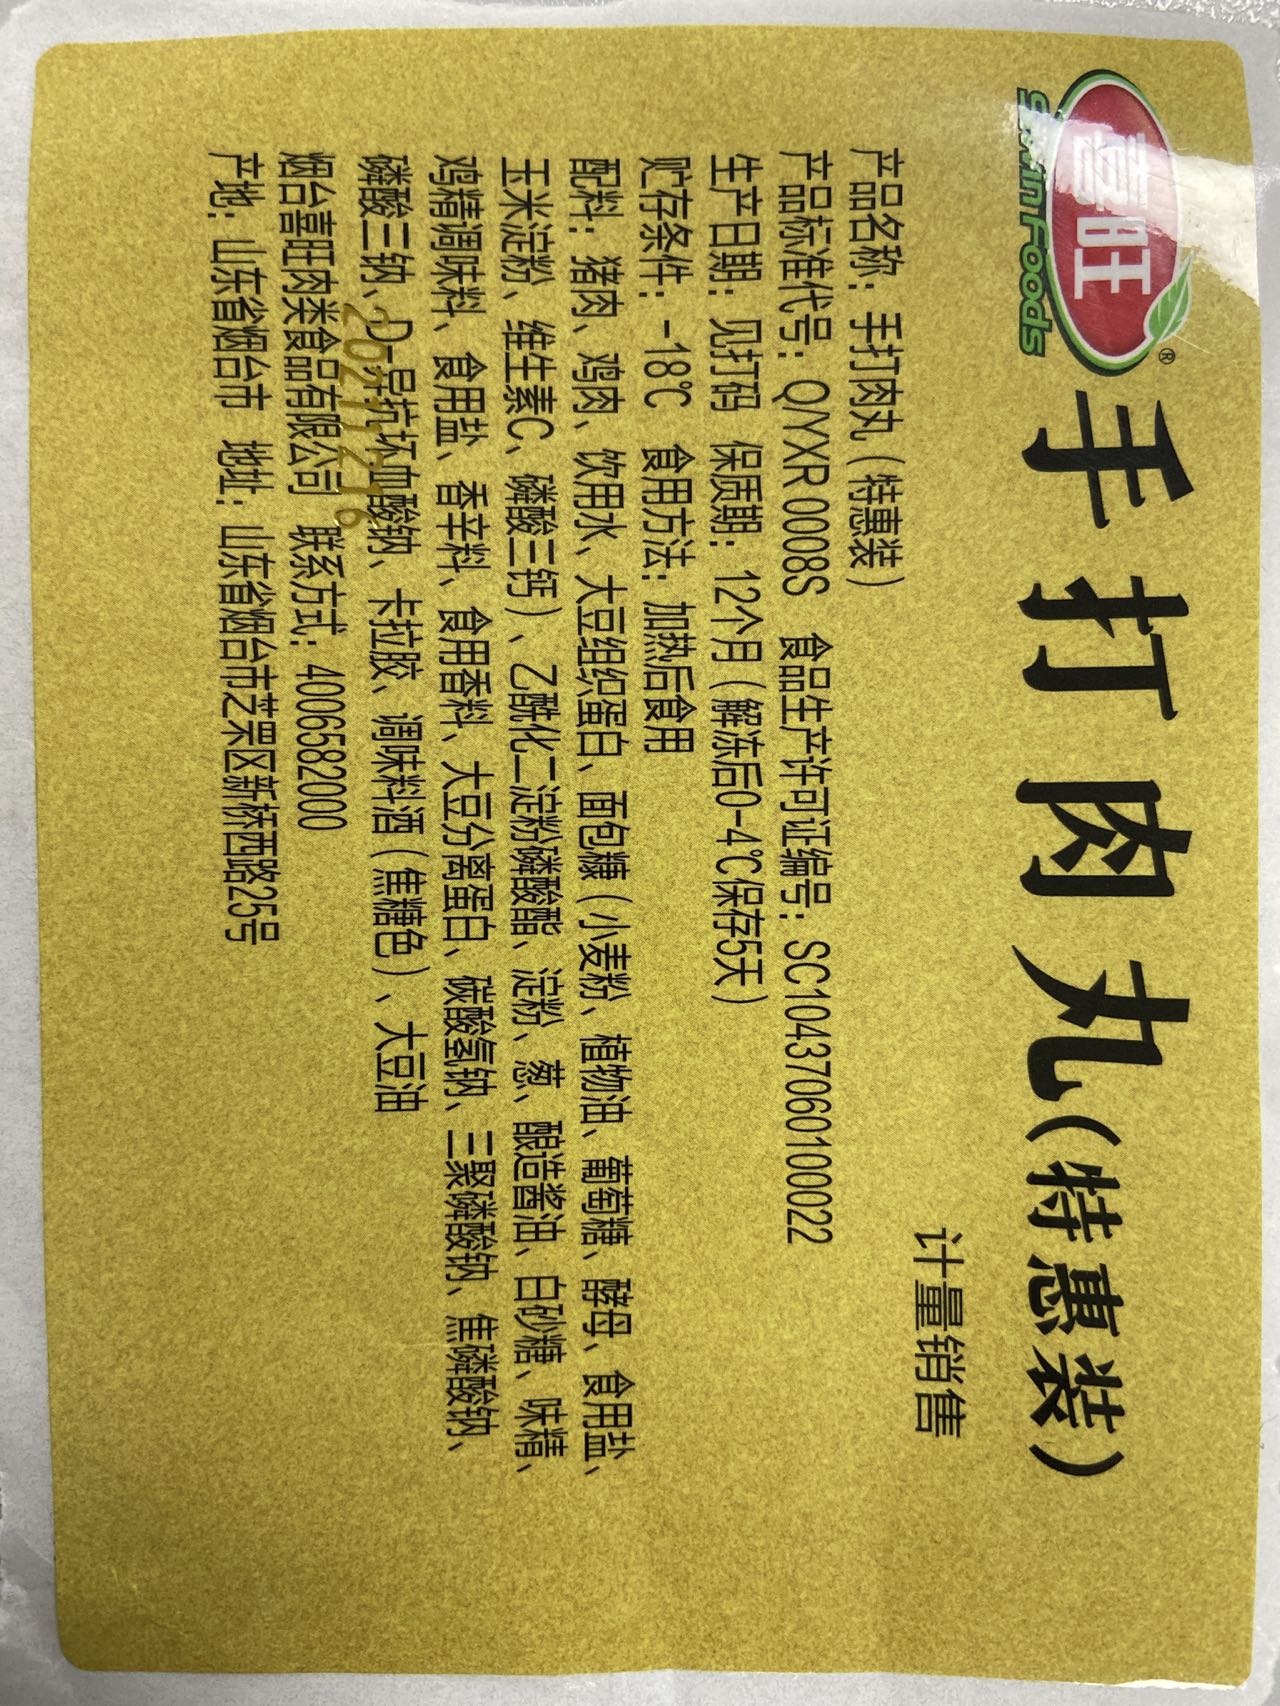 喜旺
®
手打肉丸(特惠装)
计量销售
产品名称：手打肉丸（特惠装）
产品标准代号：Q/YXR 0008S 食品生产许可证编号：SC10437060100022
生产日期：见打码 保质期：12个月（解冻后0-4℃保存5天）
贮存条件：-18℃ 食用方法：加热后食用
配料：猪肉、鸡肉、饮用水、大豆组织蛋白、面包糠（小麦粉、植物油、葡萄糖、酵母、食用盐、
玉米淀粉、维生素C、磷酸三钙）、乙酰化二淀粉磷酸酯、淀粉、葱、酿造酱油、白砂糖、味精、
鸡精调味料、食用盐、香辛料、食用香料、大豆分离蛋白、碳酸氢钠、三聚磷酸钠、焦磷酸钠、
磷酸三钠、D-异抗坏血酸钠、卡拉胶、调味料酒（焦糖色）、大豆油
烟台喜旺肉类食品有限公司 联系方式：4006582000
产地：山东省烟台市 地址：山东省烟台市芝罘区新桥西路25号